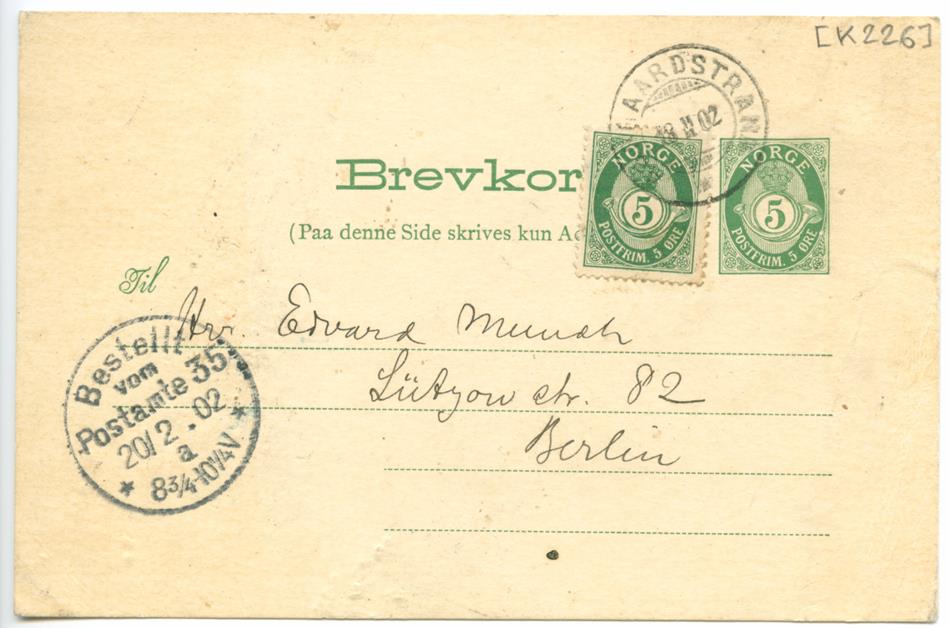 [K226]
AARDSTRAN
18 II 02
Brevkor
NORGE
5
POSTFRIM. 5 ØRE
NORGE
5
POSTFRIM. 5 ØRE
(Paa denne Side skrives kun Ad
Til
Hrr. Edvard Munch
Lützow str. 82
Berlin
Bestellt
vom
Postamte 35
20/2.02
a
* 8¾-10¼V *